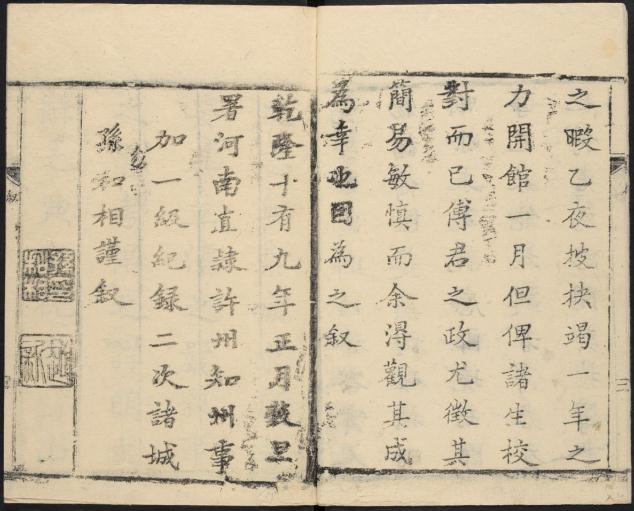 之暇乙夜披抉竭一年之
力開館一月但俾諸生校
對而已傅君之政尤徵其
簡易敏慎而余淂觀其成
為幸也因為之叙
乾隆十有九年正月穀旦
署河南直隷許州知州事
加一級紀録二次諸城
孫和相謹叙
三
叙